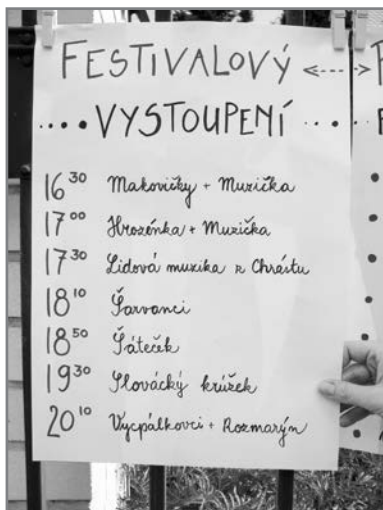 FESTIVALOVÝ <--->
.... VYSTOUPENÍ ....
16 30 Makovičky + Muzička
17 00 Hrozénka + Muzička
17 30 Lidová muzika z Chrástu
18 10 Šarvanci
18 50 Šáteček
19 30 Slovácký krúžek
20 10 Vycpálkovci + Rozmarýn